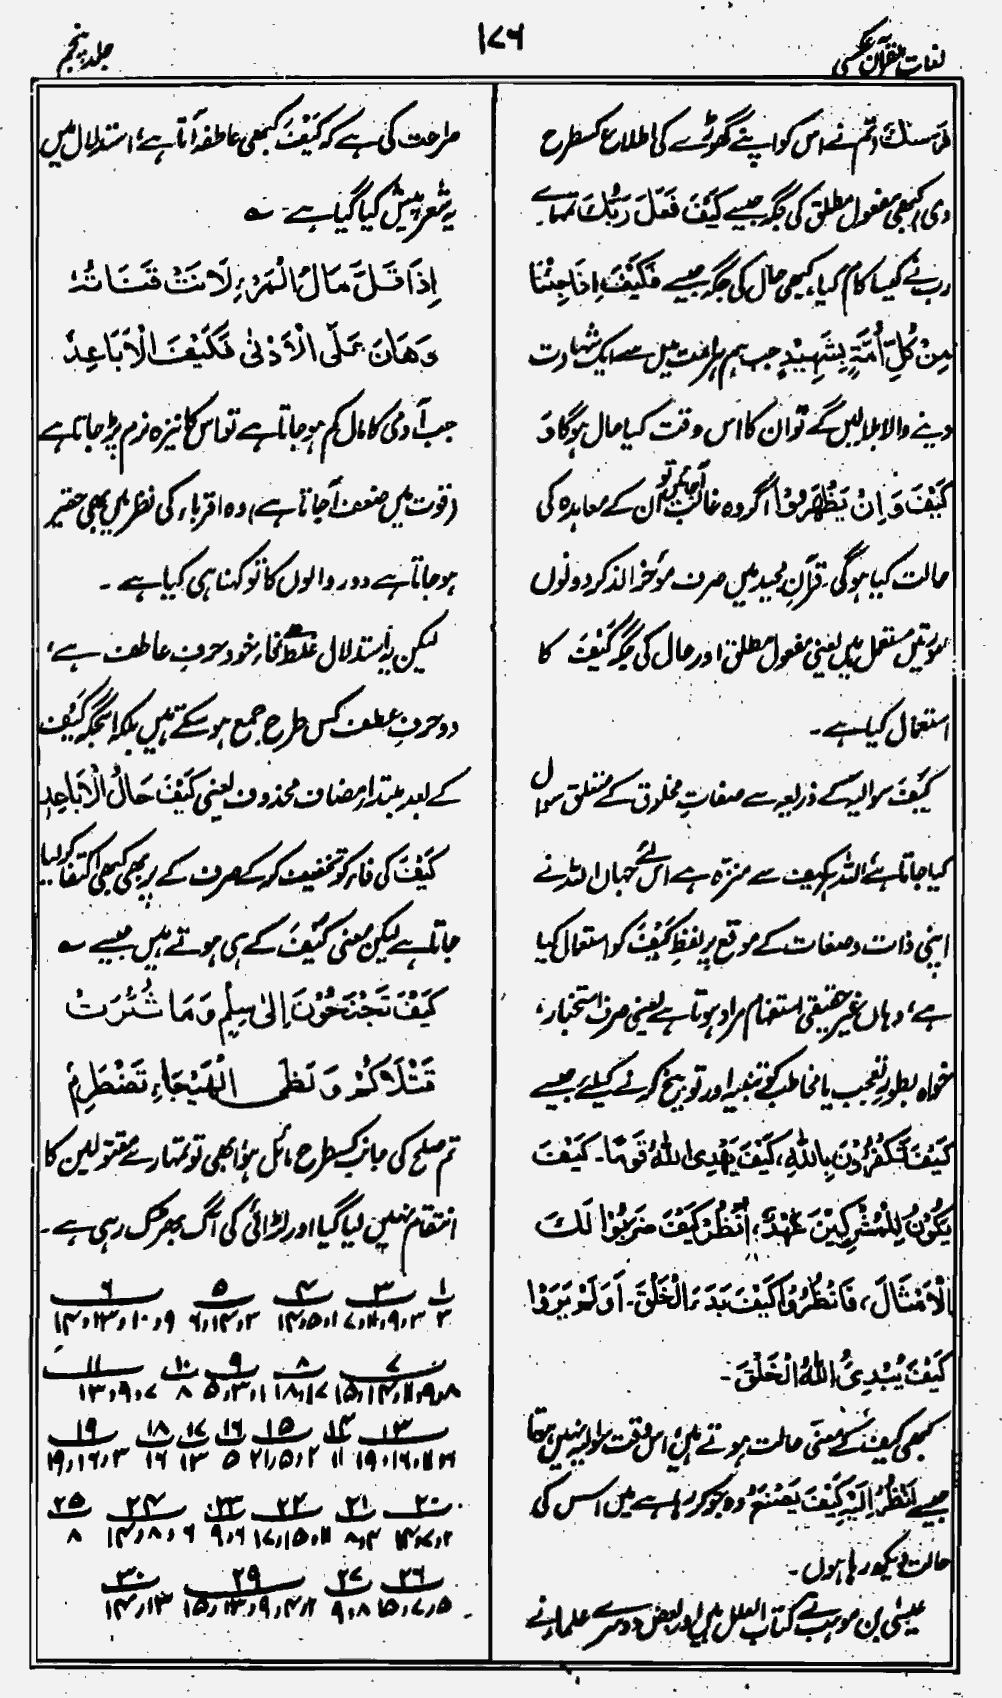 لغات القرآن عکسی
۱۷۶
جلد پنجم
فرسك، تم نے اس کو اپنے گھوڑے کی اطلاع کسطرح
دی، کبھی مفعول مطلق کی جگہ جیسے كَيْفَ فَعَلَ رَبُّكَ تمہارے
رب نے کیسا کام کیا، کبھی حال کی جگہ جیسے فَكَيْفَ اِذَا جِئْنَا
مِنْ كُلِّ اُمَّةٍ بِشَهِيْدٍ جب ہم ہر امت میں سے ایک شہادت
دینے والا بلالیں گے تو ان کا اس وقت کیا حال ہوگا وَ
كَيْفَ وَ اِنْ يَظْهَرُوْا اگر وہ غالب آجائیں تو ان کے معاہدہ کی
حالت کیا ہوگی۔ قرآن مجید میں صرف مؤخر الذکر دونوں
صورتیں مستعمل ہیں یعنی مفعول مطلق اور حال کی جگہ كَيْفَ کا
استعمال کیا ہے۔
كَيْفَ سوالیہ کے ذریعہ سے صفات مخلوق کے متعلق سوال
کیا جاتا ہے اللہ کیف سے منزہ ہے اس لئے جہاں اللہ نے
اپنی ذات وصفات کے موقع پر لفظ كَيْفَ کو استعمال کیا
ہے، وہاں غیر حقیقی استفہام مراد ہوتا ہے یعنی صرف استخبار،
خواہ بطور تعجب یا مخاطب کی تنبیہ اور توبیخ کرنے کیلئے جیسے
كَيْفَ تَكْفُرُوْنَ بِاللّٰهِ، كَيْفَ يَهْدِى اللّٰهُ قَوْمًا۔ كَيْفَ
يَكُوْنُ لِلْمُشْرِكِيْنَ عَهْدٌ، اُنْظُرْ كَيْفَ ضَرَبُوْا لَكَ
الْاَمْثَالَ، فَانْظُرُوْا كَيْفَ بَدَءَ الْخَلْقَ۔ اَوَ لَمْ يَرَوْا
كَيْفَ يُبْدِئُ اللّٰهُ الْخَلْقَ۔
کبھی کیف کے معنی حالت ہوتے ہیں اس وقت سوالیہ نہیں ہوتا
جیسے اَنْظُرُ اِلَيْهِ كَيْفَ يَصْنَعُ وہ جو کر رہا ہے میں اس کی
حالت دیکھ رہا ہوں۔
عیسیٰ بن موہب نے کتاب العلل میں اور بعض دوسرے علماء نے
صراحت کی ہے کہ كَيْفَ کبھی عاطفہ آتا ہے، استدلال میں
یہ شعر پیش کیا گیا ہے۔ ؎
اِذَا قَلَّ مَالُ الْمَرْءِ لَانَتْ قَنَاتُهٗ
وَهَانَ عَلَى الْاَدْنٰى فَكَيْفَ الْاَبَاعِدُ
جب آدمی کا مال کم ہو جاتا ہے تو اس کا نیزہ نرم پڑ جاتا ہے
(قوت میں ضعف آجاتا ہے) وہ اقرباء کی نظر میں بھی حقیر
ہو جاتا ہے دور والوں کا تو کہنا ہی کیا ہے۔
لیکن یہ استدلال غلط ہے فاء خود حرف عاطف ہے،
دو حرف عطف کس طرح جمع ہو سکتے ہیں بلکہ اسجگہ كَيْفَ
کے بعد مبتدا اور مضاف محذوف یعنی كَيْفَ حَالُ الْاَبَاعِدِ
كَيْفَ کی فاء کو تخفیف کر کے صرف کے پر بھی کبھی اکتفا کر لیا
جاتا ہے لیکن معنی كَيْفَ کے ہی ہوتے ہیں جیسے ؎
كَيْفَ تَجْنَحُوْنَ اِلٰى سِلْمٍ وَمَا ثُئِرَتْ
قَتْلَاكُمْ وَ لَظَى الْهَيْجَاءِ تَضْطَرِمُ
تم صلح کی جانب کسطرح مائل ہو ابھی تو تمہارے مقتولین کا
انتقام نہیں لیا گیا اور لڑائی کی آگ بھڑک رہی ہے۔
۱ ۳ ۴ ۵ ۶
۳ ۳،۹،۱۱،۷ ۱،۵،۱۴ ۳،۱۴،۶ ۹،۱۰،۱۳،۱۴
۷ ۸ ۹ ۱۰ ۱۱
۸،۹،۱۱،۱۴،۱۵ ۱۷،۱۸ ۱،۳،۵ ۸ ۷،۹،۱۳
۱۳ ۱۴ ۱۵ ۱۶ ۱۷ ۱۸ ۱۹
۱۶،۱۹ ۱۱ ۲،۵،۲۱ ۵ ۱۳ ۱۶ ۳،۱۶،۱۹
۲۰ ۲۱ ۲۲ ۲۳ ۲۴ ۲۵
۲،۷،۱۴ ۴،۸ ۱۱،۱۵،۱۷ ۶،۹ ۶،۸،۱۴ ۸
۲۶ ۲۷ ۲۹ ۳۰
۵،۷،۱۵ ۸،۹ ۴،۹،۱۳،۱۵ ۱۳،۱۴